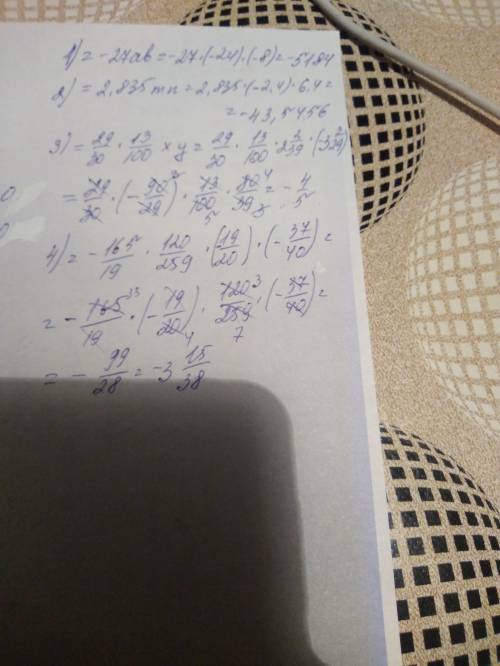 1) = -27ab = -27·(-24)·(-8) = -5184
2) = 2,835mn = 2,835·(-2,4)·6,4 =
= -43,5456
3) = 29/30 · 13/100 xy = 29/30 · 13/100 · 2 2/39 · (-3 3/29)
= 29/30 · (-90/29) · 13/100 · 80/39 = -4/5
4) = -165/19 · 120/259 · (19/20) · (-37/40) =
= -165/19 · (-19/20) · 120/259 · (-37/40) =
= -99/28 = -3 15/38